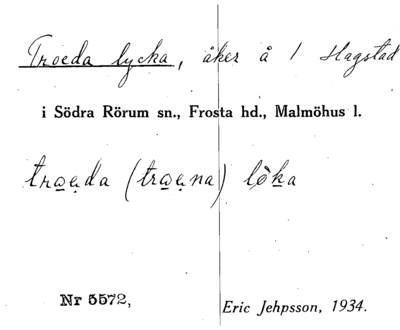 Troeda lycka, åker å 1 Hagstad
i Södra Rörum sn., Frosta hd., Malmöhus l.
tro̲ęda (tro̲ęna) lö̀k̲a
Nr 5572,
Eric Jehpsson, 1934.